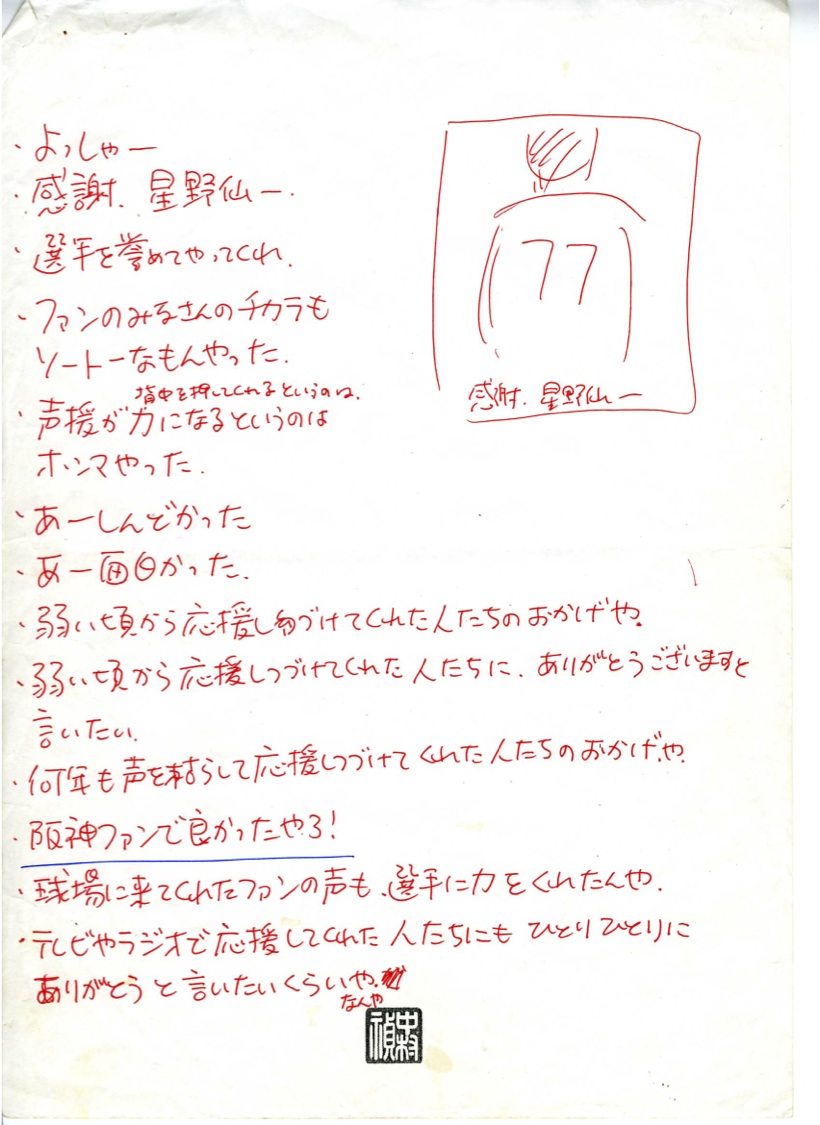 ・よっしゃー
・感謝、星野仙一.
・選手を誉めてやってくれ.
・ファンのみなさんのチカラも
ソートーなもんやった.
背中を押してくれるというのは.
・声援が力になるというのは
ホンマやった.
・あーしんどかった
・あー面白かった.
・弱い頃から応援しつづけてくれた人たちのおかげや.
・弱い頃から応援しつづけてくれた人たちに、ありがとうございますと
言いたい.
・何年も声を枯らして応援しつづけてくれた人たちのおかげや.
・阪神ファンで良かったやろ!
・球場に来てくれたファンの声も、選手に力をくれたんや.
・テレビやラジオで応援してくれた人たちにもひとりひとりに
ありがとうと言いたいくらいや.
なんや
77
感謝、星野仙一
中村
禎